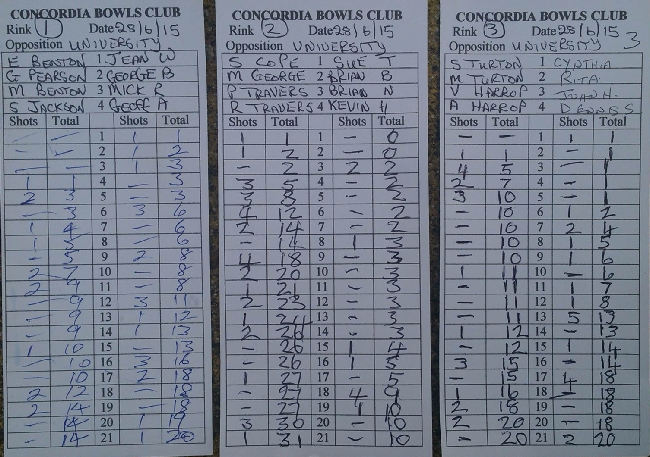 CONCORDIA BOWLS CLUB
Rink 1 Date 28/6/15
Opposition UNIVERSITY
E BENTON 1 JEAN W
G PEARSON 2 GEORGE B
M BENTON 3 MICK R
S JACKSON 4 GEOFF A
Shots Total Shots Total
— — 1 1 1
— — 2 1 2
— — 3 1 3
1 1 4 — 3
2 3 5 — 3
— 3 6 3 6
1 4 7 — 6
1 5 8 — 6
— 5 9 2 8
2 7 10 — 8
2 9 11 — 8
— 9 12 3 11
— 9 13 1 12
— 9 14 1 13
1 10 15 — 13
— 10 16 3 16
— 10 17 2 18
2 12 18 — 18
2 14 19 — 18
— 14 20 1 19
— 14 21 1 20
CONCORDIA BOWLS CLUB
Rink 2 Date 28/6/15
Opposition UNIVERSITY
S COPE 1 SUE T
M GEORGE 2 BRIAN B
P TRAVERS 3 BRIAN N
R TRAVERS 4 KEVIN H
Shots Total Shots Total
1 1 1 — 0
1 2 2 — 0
— 2 3 2 2
3 5 4 — 2
3 8 5 — 2
4 12 6 — 2
2 14 7 — 2
— 14 8 1 3
4 18 9 — 3
2 20 10 — 3
1 21 11 — 3
2 23 12 — 3
1 24 13 — 3
2 26 14 — 3
— 26 15 1 4
— 26 16 1 5
1 27 17 — 5
— 27 18 4 9
— 27 19 1 10
3 30 20 — 10
1 31 21 — 10
CONCORDIA BOWLS CLUB
Rink 3 Date 28/6/15
Opposition UNIVERSITY 3
S TURTON 1 CYNTHIA
M TURTON 2 RITA
V HARROP 3 JOHN H.
A HARROP 4 DENNIS
Shots Total Shots Total
— — 1 1 1
1 1 2 — 1
4 5 3 — 1
2 7 4 — 1
3 10 5 — 1
— 10 6 1 2
— 10 7 2 4
— 10 8 1 5
— 10 9 1 6
1 11 10 — 6
— 11 11 1 7
— 11 12 1 8
— 11 13 5 13
1 12 14 — 13
— 12 15 1 14
3 15 16 — 14
— 15 17 4 18
1 16 18 — 18
2 18 19 — 18
2 20 20 — 18
— 20 21 2 20